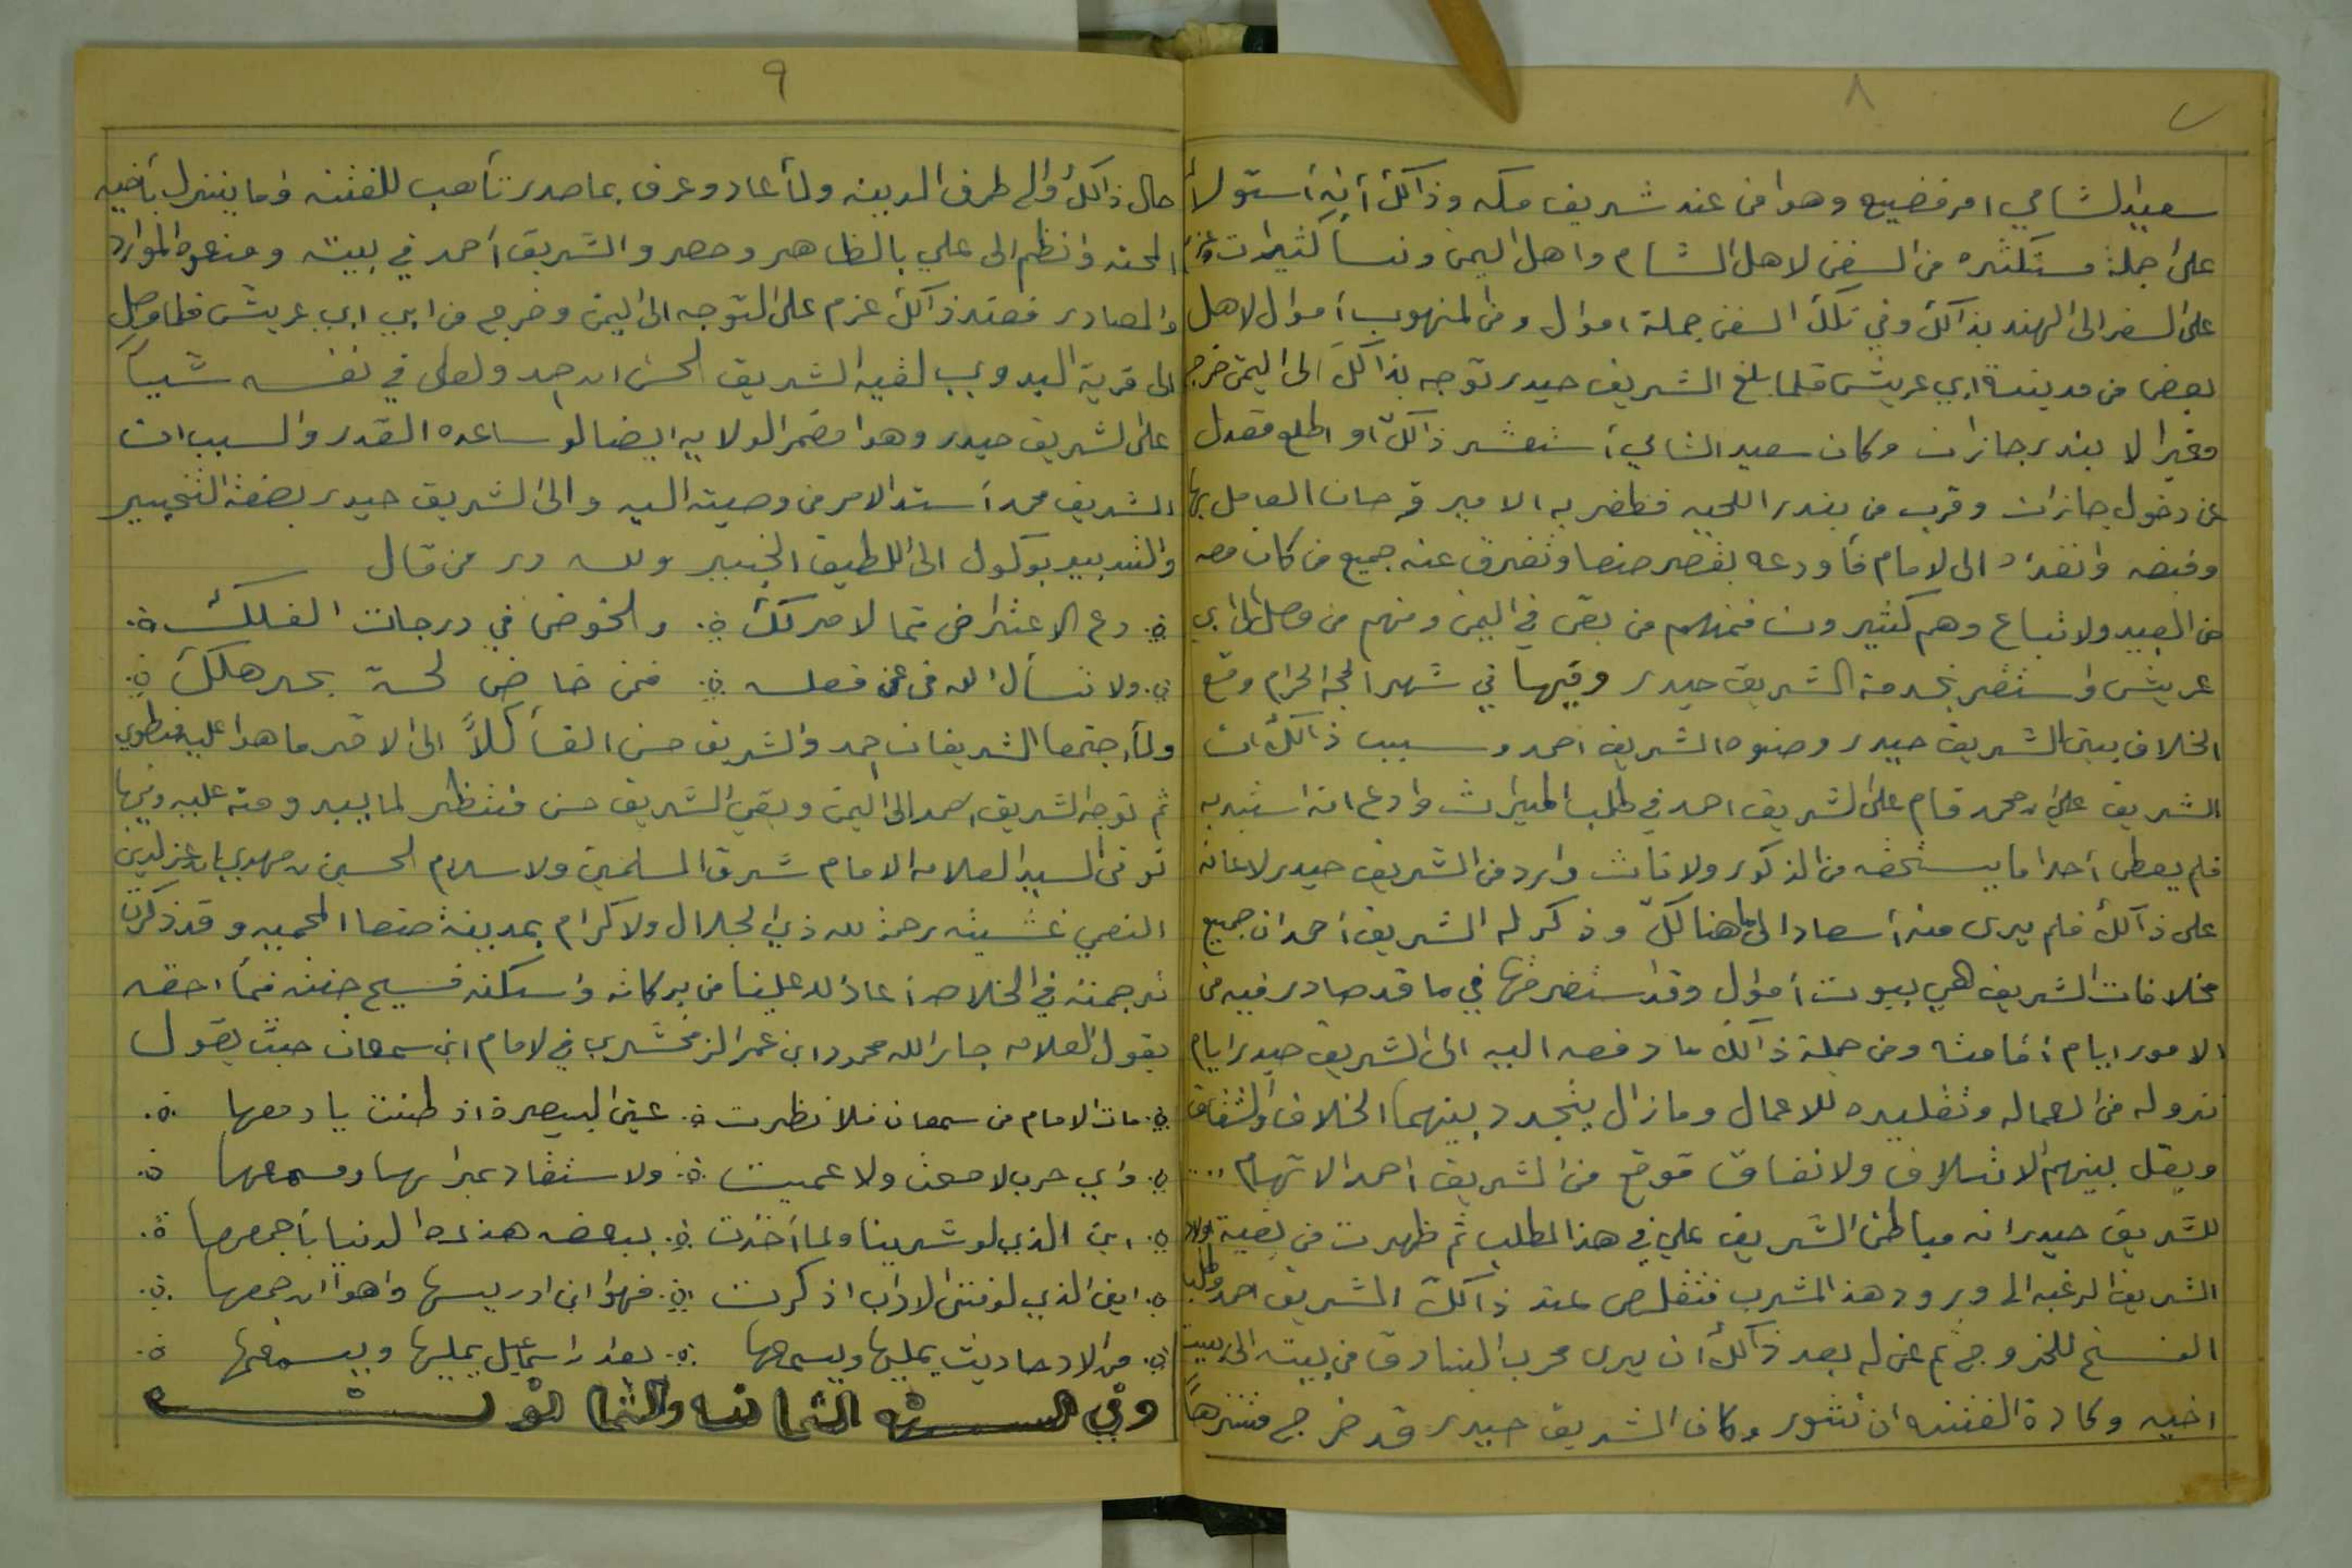 ٨
سعيد الشامي امر فضيع وهوا من عند شريف مكه وذالك أنه أستولا
على جملة مستكثره من السفن لاهل الشام واهل اليمن ونسا كثيرات وعزم
على السفر الى الهند بذالك وفي تلك السفن جملة اموال ومن المنهوب أموال لاهل
بعض من مدينة ابي عريش فلما بلغ الشريف حيدر توجه بذالك الى اليمن خرج
مغيرا لا بندر جازان وكان سعيد الشامي أستشعر ذالك او اطلع فعدل
عن دخول جازان وقرب من بندر اللحيه فظفر به الامير فرحان العامل بها
وقبضه وانفذه الى لامام فأودعه بقصر صنعا وتفرق عنه جميع من كان معه
من العبيد ولاتباع وهم كثيرون فمنهم من بقى في اليمن ومنهم من وصل الى ابي
عريش واستقر بخدمة الشريف حيدر وفيها في شهر الحجه الحرام وقع
الخلاف بين الشريف حيدر وصنوه الشريف احمد وسبب ذالك ان
الشريف علي بن محمد قام على الشريف احمد في طلب الميراث وادعى انه استبد به
فلم يعطى أحدا ما يستحقه من الذكور ولاناث وارد من الشريف حيدر لاعانه
على ذالك فلم يرى منه أسعادا الى ما هنالك وذكر له الشريف أحمد ان جميع
مخلافات الشريف هي بيوت أموال وقد استغرقها في ما قد صادر فيه من
الامور ايام أقامته ومن جملة ذالك ما دفعه اليه الى الشريف حيدر ايام
نزوله من العماله وتقليده للاعمال ومازال يتجدد بينهما الخلاف والشقاق
ويقل بينهم لائتلاف ولاتفاق فوقع من الشريف احمد الاتهام ..
للشريف حيدر انه مباطن الشريف علي في هذا المطلب ثم ظهرت من بقية اولاد
الشريف الرغبه الى ورود هذا المشرب فتقلص عند ذالك الشريف احمد وطلب
الفسح للخروج ثم عن له بعد ذالك أن يرى محرب البنادق من بيته الى بيت
اخيه وكادة الفتنه ان تثور وكان الشريف حيدر قد خرج متنزهاً
٩
حال ذالك والى طرف المدينه ولما عاد وعرف بما صدر تأهب للفتنه وما ينزل بأخيه
المحنه وانظم الى علي بالظاهر وحصروا الشريف أحمد في بيته ومنعوه الموارد
والمصادر فعند ذالك عزم على التوجه الى اليمن وخرج من ابي ابي عريش فلما وصل
الى قرية البدوي لقيه الشريف الحسن بن احمد ولعل في نفسه شيئاً
على الشريف حيدر وهوا مضمر الولايه ايضا لو ساعده القدر والسبب ان
الشريف محمد أسند الامر من وصيته اليه والى الشريف حيدر بصفة التخيير
والتدبير بوكول الى اللطيف الخبير ولله در من قال
دع الاعتراض فما لامر لك ولخوض في درجات الفلك
ولا تسأل الله في عن فعله فمن خاض لجة بحر هلك
ولما اجتمعا الشريفان احمد والشريف حسن القا كلاً الى الاخر ما هوا عليه منطوي
ثم توجه الشريف احمد الى اليمن وبقي الشريف حسن منتظر لما يبدو منه عليه وفيها
توفى السيد العلامه الامام شرف المسلمين ولاسلام الحسين بن مهدي بن عز الدين
النعمي غشيته رحمة لله ذي الجلال ولاكرام بمدينة صنعا المحميه وقد ذكرت
ترجمته في الخلاصه أعاذ لله علينا من بركاته واسكنه فسيح جنته فما احقه
بقول العلامه جار الله محمود ابن عمر الزمخشري في لامام ابن سمعان حيث يقول
مات الامام من سمعان فلا نظرت عين البصيرة اذ ظنت يادمعها
واي حرب لا معن ولا عميت ولا ستفاد عبرا بها ومسمعها
اين الذي لو شرينا ولما أخذت ببعضه هذه الدنيا بأجمعها
اين الذي لو فتنى الاداب اذ كرت فهوا ابن ادريسها واهوا ابن جمعها
من الاحاديث يمليها ويسمعها بعد اسماعيل يمليها ويسمعها
وفي السنه الثمانه والثمانون